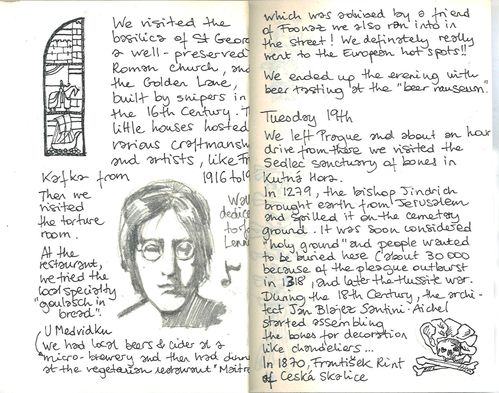 We visited the
basilica of St Georg
a well-preserved
Roman Church, and
the Golden Lane,
built by snipers in
the 16th Century. T
little houses hosted
various craftmansh
and artists, like Fr
Kafka from 1916 to 19
Then we
visited
the torture
room.
At the
restaurant,
we tried the
local specialty
"goulasch in
bread".
Wal
dedic
to Jo
Lenn
(U Medvidku
We had local beers & cider at a
"micro-brewery and then had dinne
at the vegetarian restaurant "Maitre
which was advised by a friend
of Foonaz we also ran into in
the street! We definately really
went to the European hot spots!!
We ended up the evening with
beer tasting at the "beer museum".
Tuesday 19th
We left Prague and about an hour
drive from there we visited the
Sedlec sanctuary of bones in
Kutná Hora.
In 1279, the bishop Jindrich
brought earth from Jerusalem
and spilled it on the cemetary
ground. It was soon considered
"holy ground" and people wanted
to be buried here (about 30 000
because of the pleague outburst
in 1318, and later the Hussite war.
During the 18th Century, the archi-
tect Jan Blajez Santini-Aichel
started assembling
the bones for decoration
like chandeliers...
In 1870, František Rint
of Ceská Skalice